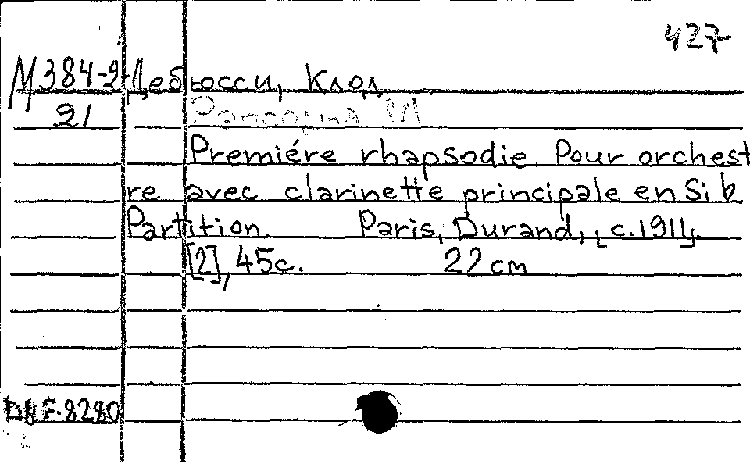 427
M384-2 Дебюсси, Клод
21 Рапсодия
Premiére rhapsodie. Pour orchest
re avec clarinette principale en Si b
Partition. Paris, Durand, [c.1911].
[2], 45c. 22 cm
8280